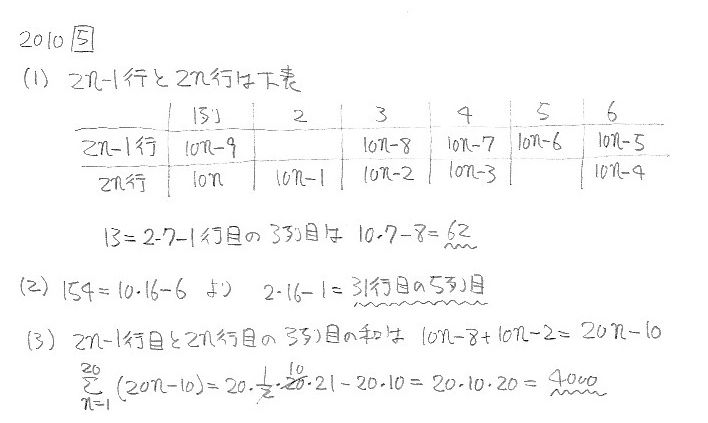 2010 5
(1) 2n-1行と2n行は下表
1列 2 3 4 5 6
2n-1行 10n-9 10n-8 10n-7 10n-6 10n-5
2n行 10n 10n-1 10n-2 10n-3 10n-4
13=2・7-1行目の3列目は 10・7-8=62
(2) 154=10・16-6 より 2・16-1=31行目の5列目
(3) 2n-1行目と2n行目の3列目の和は 10n-8+10n-2=20n-10
20 10
Σ (20n-10)=20・1/2・20・21-20・10=20・10・20=4000
n=1